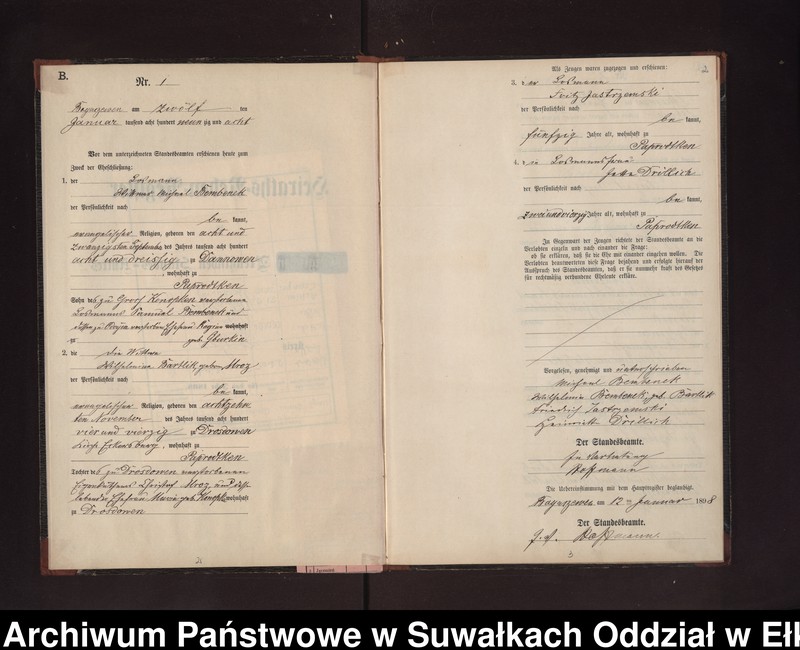 B.
Nr. 1
am zwölf ten
Januar tausend acht hundert neun zig und acht
Vor dem unterzeichneten Standesbeamten erschienen heute zum
Zweck der Eheschließung:
1. der Losmann
Wittwer Michael Bembenek
der Persönlichkeit nach
be kannt,
evangelischer Religion, geboren den acht und
zwanzigsten des Jahres tausend acht hundert
acht und dreißig zu Dannowen
, wohnhaft zu
Paprodtken
Sohn des zu Groß Konopken verstorbenen
Losmanns Samuel Bembenek und
verstorbenen Ehefrau wohnhaft
zu geb.
2. die Wittwe
Wilhelmine Bartlik geboren Mroz
der Persönlichkeit nach
be kannt,
evangelischer Religion, geboren den achtzehn
ten November des Jahres tausend acht hundert
vier und vierzig zu Drosdowen
, wohnhaft zu
Paprodtken
Tochter des zu Drosdowen verstorbenen
Eigenkäthners Christof Mroz und
Ehefrau geb. wohnhaft
zu Drosdowen
Als Zeugen waren zugezogen und erschienen:
2
3. der Losmann
Fritz Jastrzemski
der Persönlichkeit nach
be kannt,
fünfzig Jahre alt, wohnhaft zu
Paprodtken
4. die Losmannsfrau
Drillich
der Persönlichkeit nach
be kannt,
zweiundvierzig Jahre alt, wohnhaft zu
Paprodtken
In Gegenwart der Zeugen richtete der Standesbeamte an die
Verlobten einzeln und nach einander die Frage:
ob sie erklären, daß sie die Ehe mit einander eingehen wollen. Die
Verlobten beantworteten diese Frage bejahend und erfolgte hierauf der
Ausspruch des Standesbeamten, daß er sie nunmehr kraft des Gesetzes
für rechtmäßig verbundene Eheleute erkläre.
Vorgelesen, genehmigt und unterschrieben
Michael Bembenek
Wilhelmine Bembenek, geb. Bartlik
Friedrich Jastrzemski
Heinriette Drillich
Der Standesbeamte.
In Vertretung
Roßmann
Die Uebereinstimmung mit dem Hauptregister beglaubigt.
am 12ten Januar 1898
Der Standesbeamte.
Roßmann
3
Archiwum Państwowe w Suwałkach Oddział w Ełk